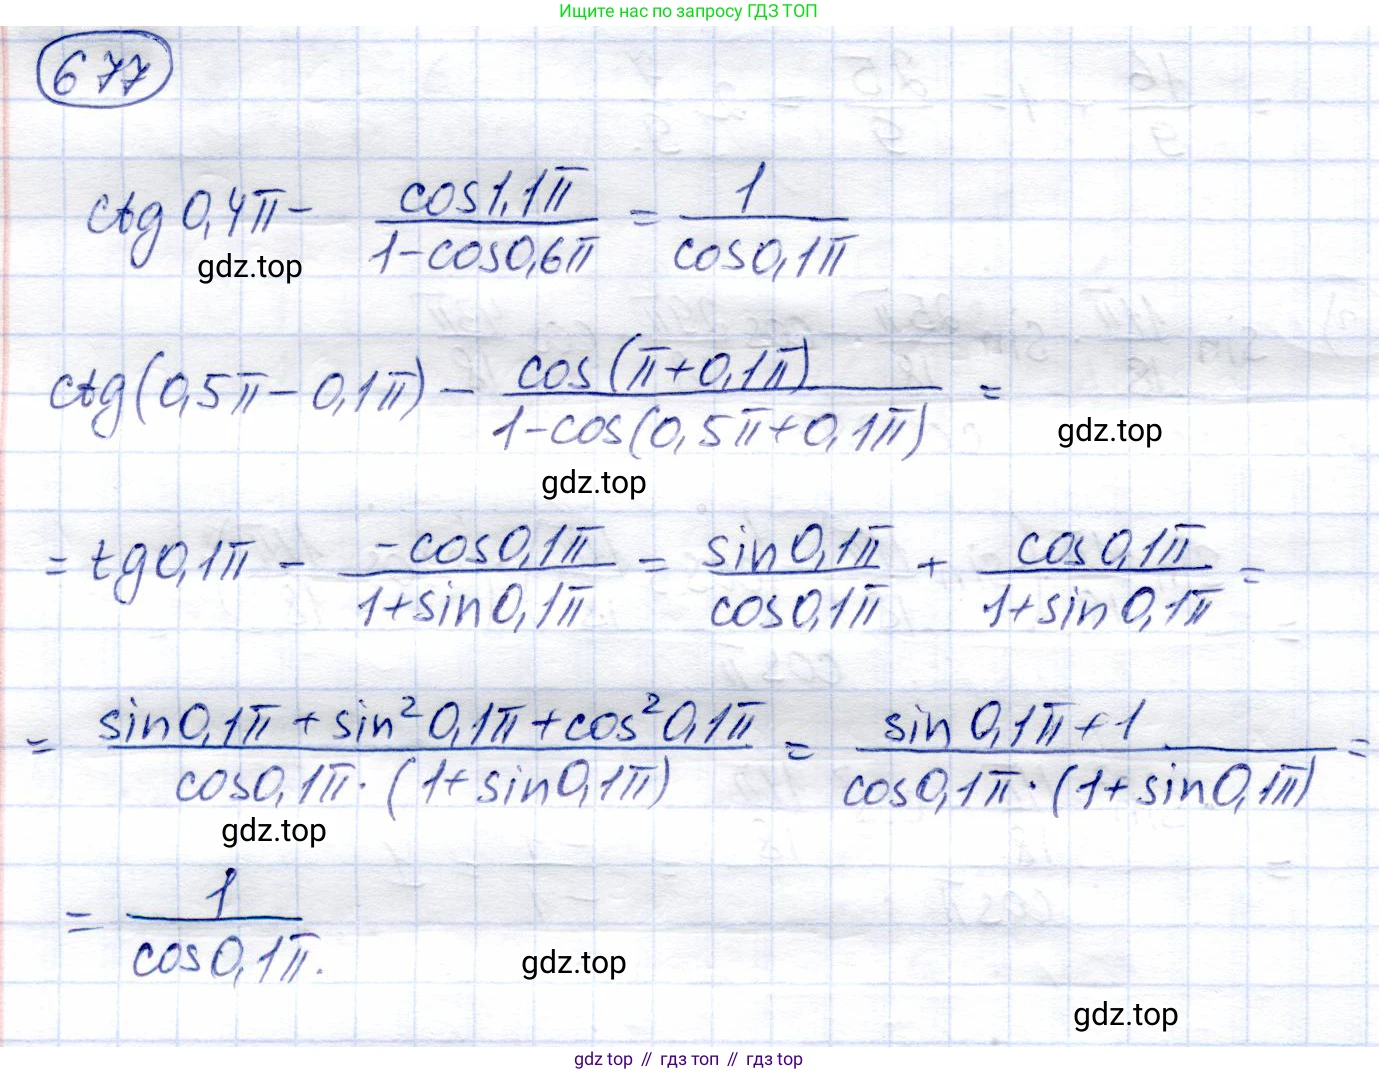 Ищите нас по запросу ГДЗ ТОП
677
ctg 0,4π - cos1,1π / 1-cos0,6π = 1 / cos0,1π
gdz.top
ctg(0,5π - 0,1π) - cos(π+0,1π) / 1-cos(0,5π+0,1π) =
gdz.top
gdz.top
= tg0,1π - -cos0,1π / 1+sin0,1π = sin0,1π / cos0,1π + cos0,1π / 1+sin0,1π =
= sin0,1π + sin² 0,1π + cos² 0,1π / cos0,1π · (1+sin0,1π) = sin 0,1π + 1 / cos0,1π · (1+sin0,1π) =
gdz.top
= 1 / cos0,1π.
gdz.top
gdz.top
gdz top // гдз топ // gdz top